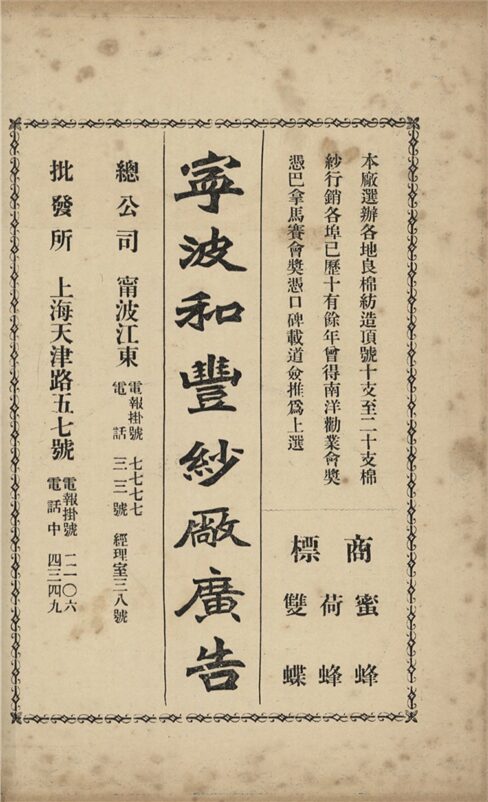 本廠選辦各地良棉紡造頂號十支至二十支棉
紗行銷各埠已歷十有餘年曾得南洋勸業會獎
憑巴拿馬賽會獎憑口碑載道僉推爲上選
商標
蜜蜂
荷蜂
雙蝶
寧波和豐紗廠廣告
總公司 甯波江東
電報掛號 七七七七
電話 三三號 經理室三八號
批發所 上海天津路五七號
電報掛號 一一〇六
電話中 四三四九